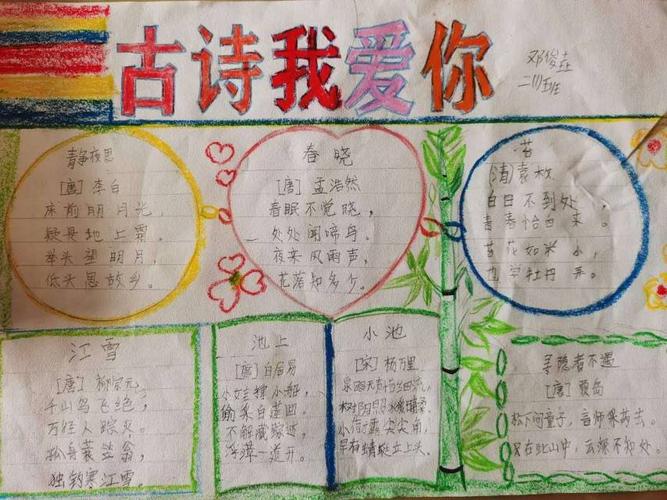 古诗我爱你
邓俊垚
二(1)班
静夜思
[唐] 李白
床前明月光,
疑是地上霜。
举头望明月,
低头思故乡。
春晓
[唐] 孟浩然
春眠不觉晓,
处处闻啼鸟。
夜来风雨声,
花落知多少。
苔
[清]袁枚
白日不到处,
青春恰自来。
苔花如米小,
也学牡丹开。
江雪
[唐] 柳宗元
千山鸟飞绝,
万径人踪灭。
孤舟蓑笠翁,
独钓寒江雪。
池上
[唐] 白居易
小娃撑小船,
偷采白莲回
不解藏踪迹,
浮萍一道开。
小池
[宋] 杨万里
泉眼无声惜细流,
树阴照水爱晴柔。
小荷才露尖尖角,
早有蜻蜓立上头。
寻隐者不遇
[唐] 贾岛
松下问童子,言师采药去。
只在此山中,云深不知处。